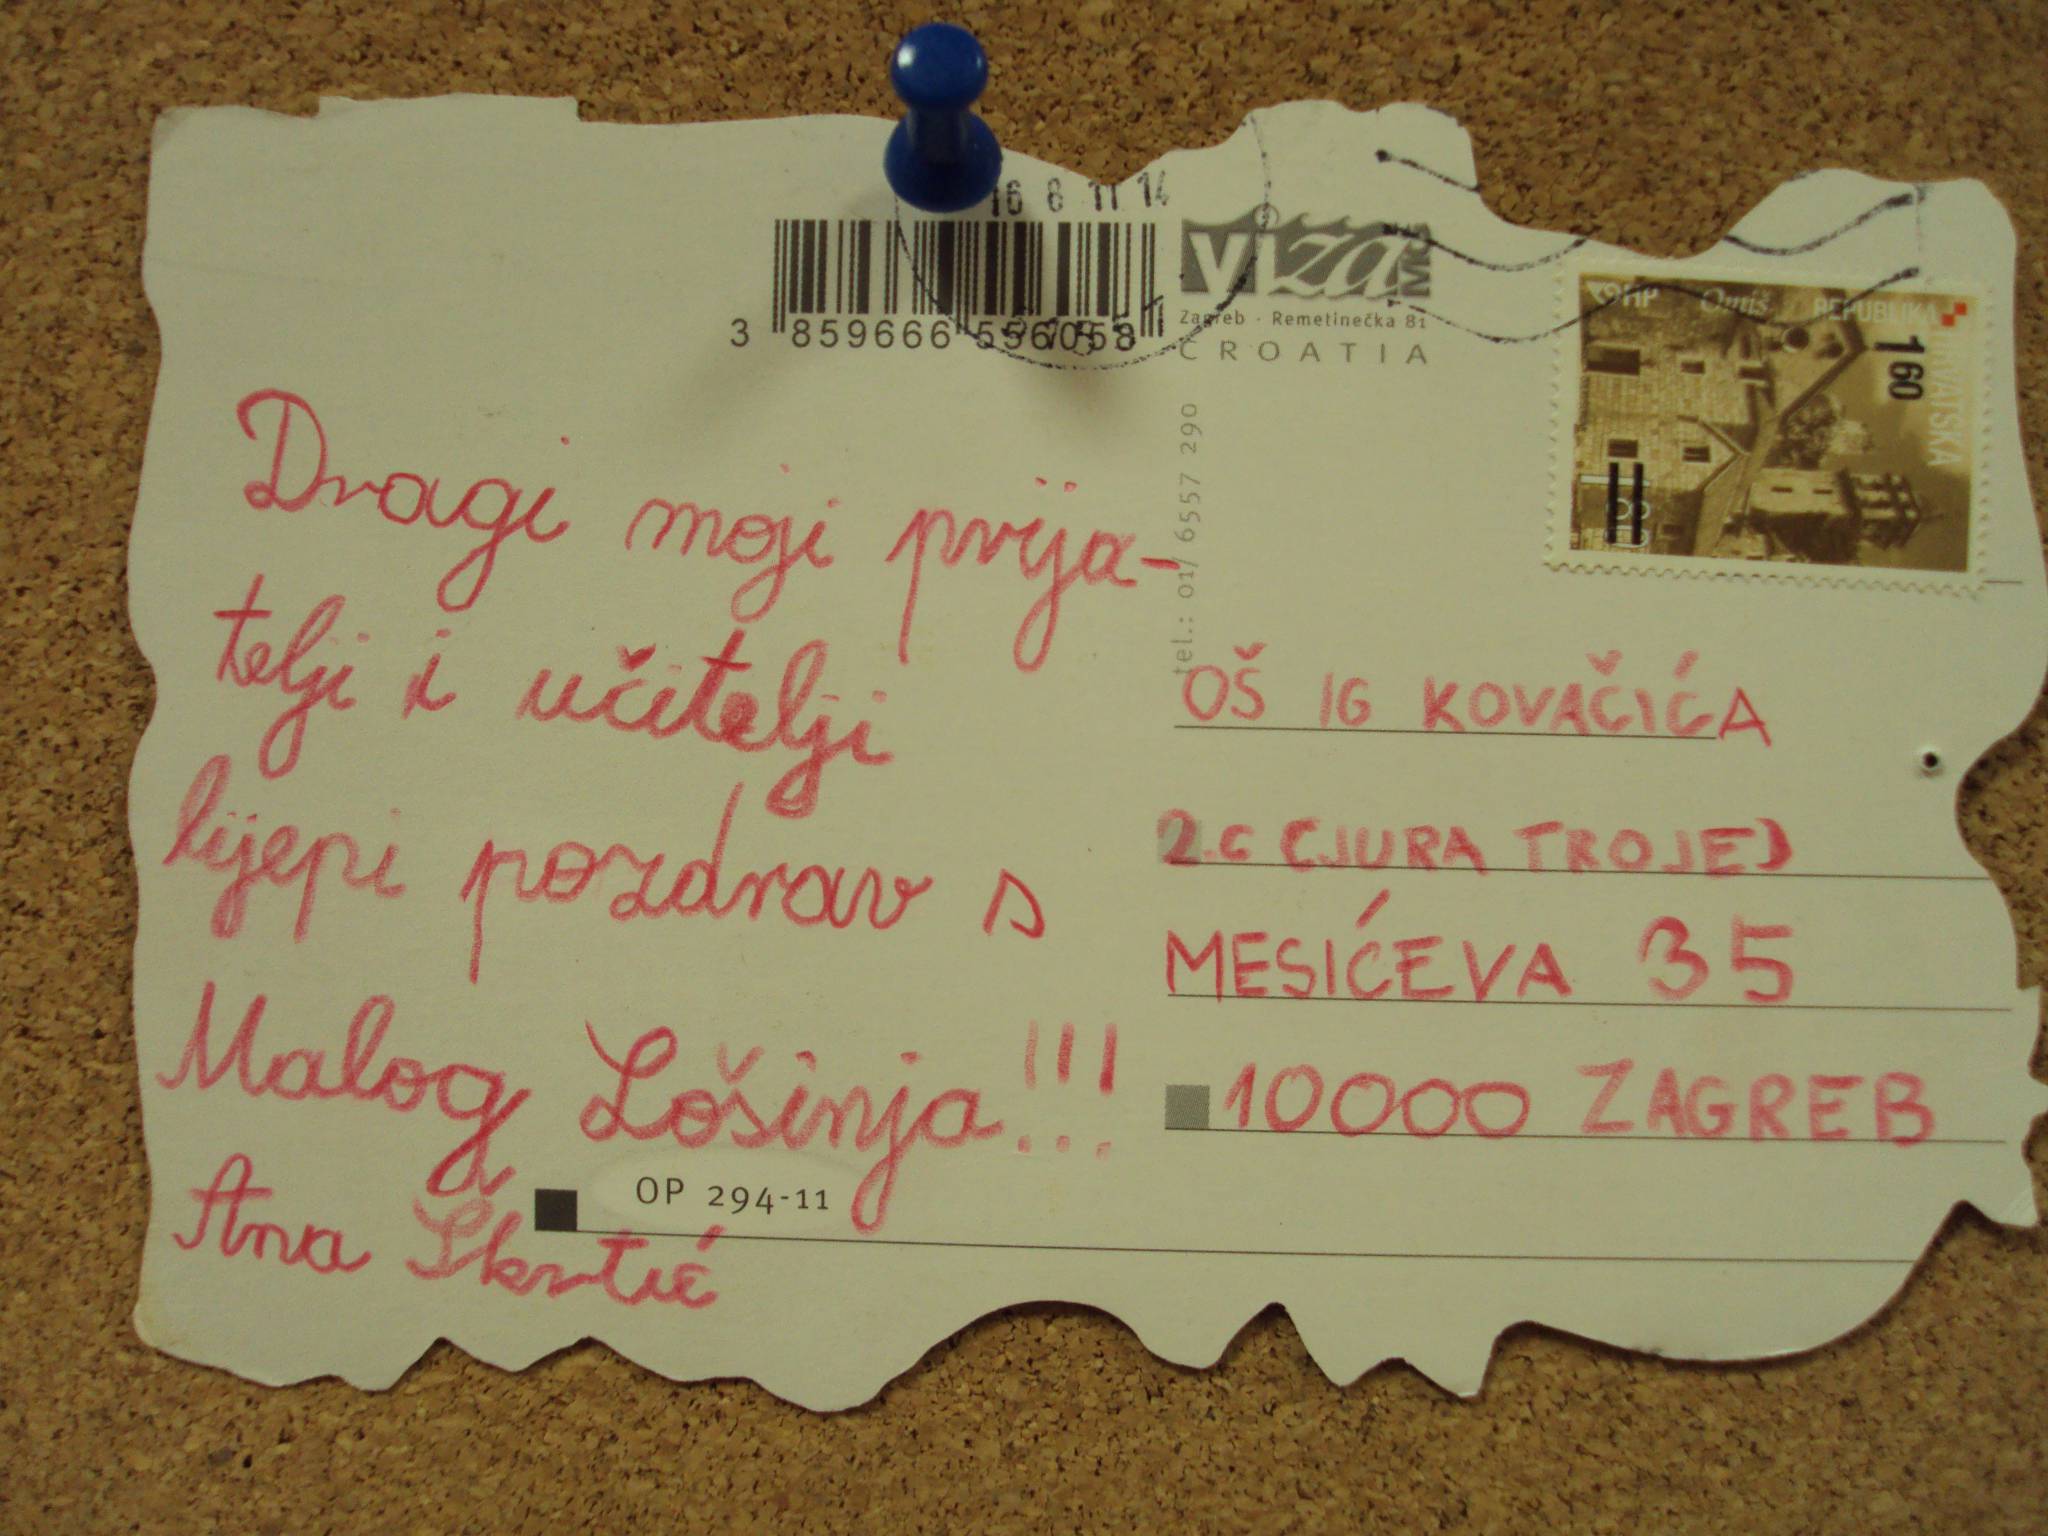 16 8 11 14
3 859666 556058
viza MG
Zagreb · Remetinečka 81
CROATIA
tel.: 01/ 6557 290
HP Omiš REPUBLIKA
HRVATSKA
1 60
Dragi moji prija-
telji i učitelji
lijepi pozdrav s
Malog Lošinja!!!
Ana Skrtić
OP 294-11
OŠ IG KOVAČIĆA
2.c (JURA TROJE)
MESIĆEVA 35
10000 ZAGREB